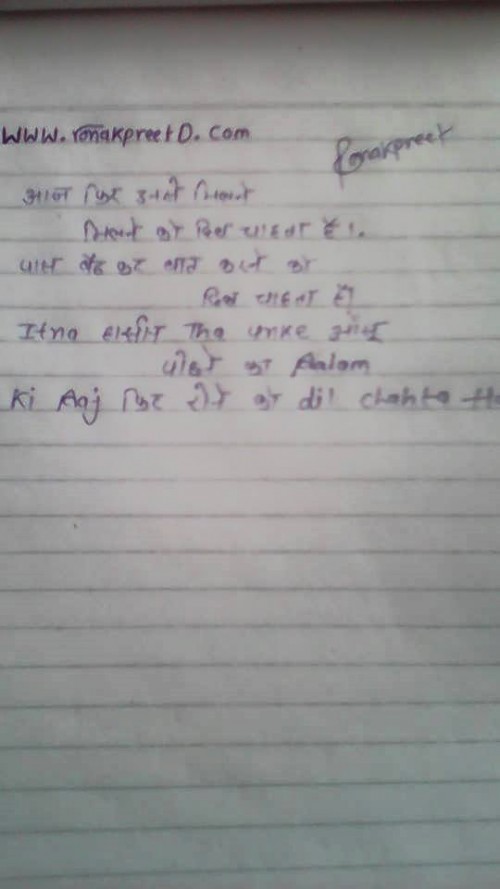 www.ronakpreetD.com
Ronakpreet
आज फिर उनसे मिलने
मिलने को दिल चाहता है।.
पास बैठ कर बात करने को
दिल चाहता है।
Itna हासीन Tha unke आँसू
पोछने का Aalam
Ki Aaj फिर रोने को dil chahta Ha